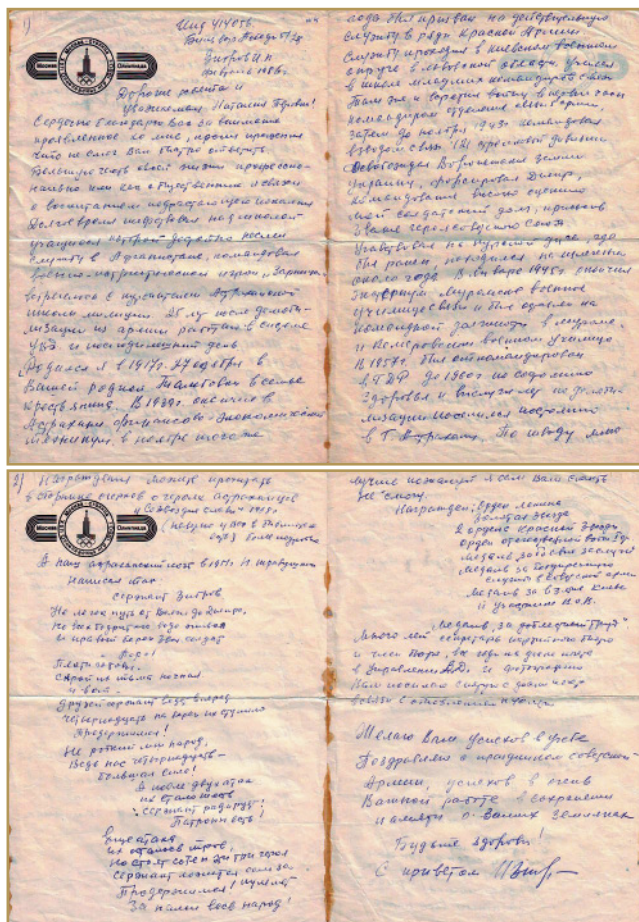 1)
Инд 414056.
Бульвар Победы
Зитров И.П.
Февраль 1986г.
Москва Олимпиада
Дорогие ребята и
уважаемая Наталия Петровна!
Сердечно благодарю Вас за внимание
проявленное ко мне, прошу прощения
что не смог Вам быстро ответить
Большую часть своей жизни профессио-
нально или как общественник я связан
с воспитанием подрастающего поколения
Долгое время шефствовал над школой
учащиеся которой достойно несли
службу в Афганистане, командовал
военно-патриотической игрой "Зарница"
встречался с курсантами Астраханской
школы милиции. 25 лет после демоби-
лизации из армии работаю в системе
УВД и по сегодняшний день
Родился я в 1917г. 27 октября в
Вашей родной Тамбовке в семье
крестьянина. В 1939г. окончил в
Астрахани Финансово-экономический
техникум, в ноябре этого же
года был призван на действительную
службу в ряды Красной Армии
Службу проходил в Киевском военном
округе в Львовской области. Учился
в школе младших командиров связи
Там же и встретил войну в первые часы
командиром отделения связи армии,
затем до ноября 1943г. командовал
взводом связи 181 стрелковой дивизии
Освобождал Воронежские земли
Украину, форсировал Днепр,
Командование высоко оценило
мой солдатский долг, присвоив
звание героя советского союза
Участвовал на курской дуге, где
был ранен, находился на излечении
около года. В январе 1945г. окончил
экстерном Муромское военное
училище связи и был оставлен на
командной должности в Муромском
и Кемеровском военном училище
В 1957г. был откомандирован
в ГДР до 1960г. по состоянию
здоровья и выслуге лет по демоби-
лизации поселился постоянно
в г. Астрахани. По поводу моего
2) награждения можете прочитать
в сборнике очерков о героях астраханцах
"Созвездие славы"
Москва Олимпиада
А наш астраханский поэт в
написал так
Сержант Зитров
Не легок путь от Волги до Днепра,
И правый берег ждал солдат
- Пора!
Плоты готовы.
Скрыла их тьма ночная
и вот.
Друзей сержант ведет вперед
Четырнадцать на берег поступило
Продержимся!
Не робкий мы народ,
Ведь нас четырнадцать -
Большая сила!
А после двух атак
не стало шесть
: сержант радирует:
Патроны есть!
Еще атака
их осталось трое,
Но стоят сотен эти три героя
Сержант ложится сам за
Продержимся! пулемет
За нами весь народ!
лучше познакомит я сам Вам сказать
не смогу.
Награжден: Орден Ленина
Золотая Звезда
2 ордена Красной Звезды
Орден отечественной войны
медаль за боевые заслуги
Медаль за безупречную
службу в Советской армии
Медаль за взятие Киева
и участнику В.О.В.
Медаль "за доблестный труд"
Много лет секретарь партийного бюро
и член бюро,
в Управлении В.Д. и фотографию
Вам посылаю с доски почета
в связи с обновлением
Желаю Вам успехов в учебе
Поздравляю с праздником советской
Армии, успехов в очень
Важной работе в сохранении
памяти о Ваших земляках
Будьте здоровы!
С приветом